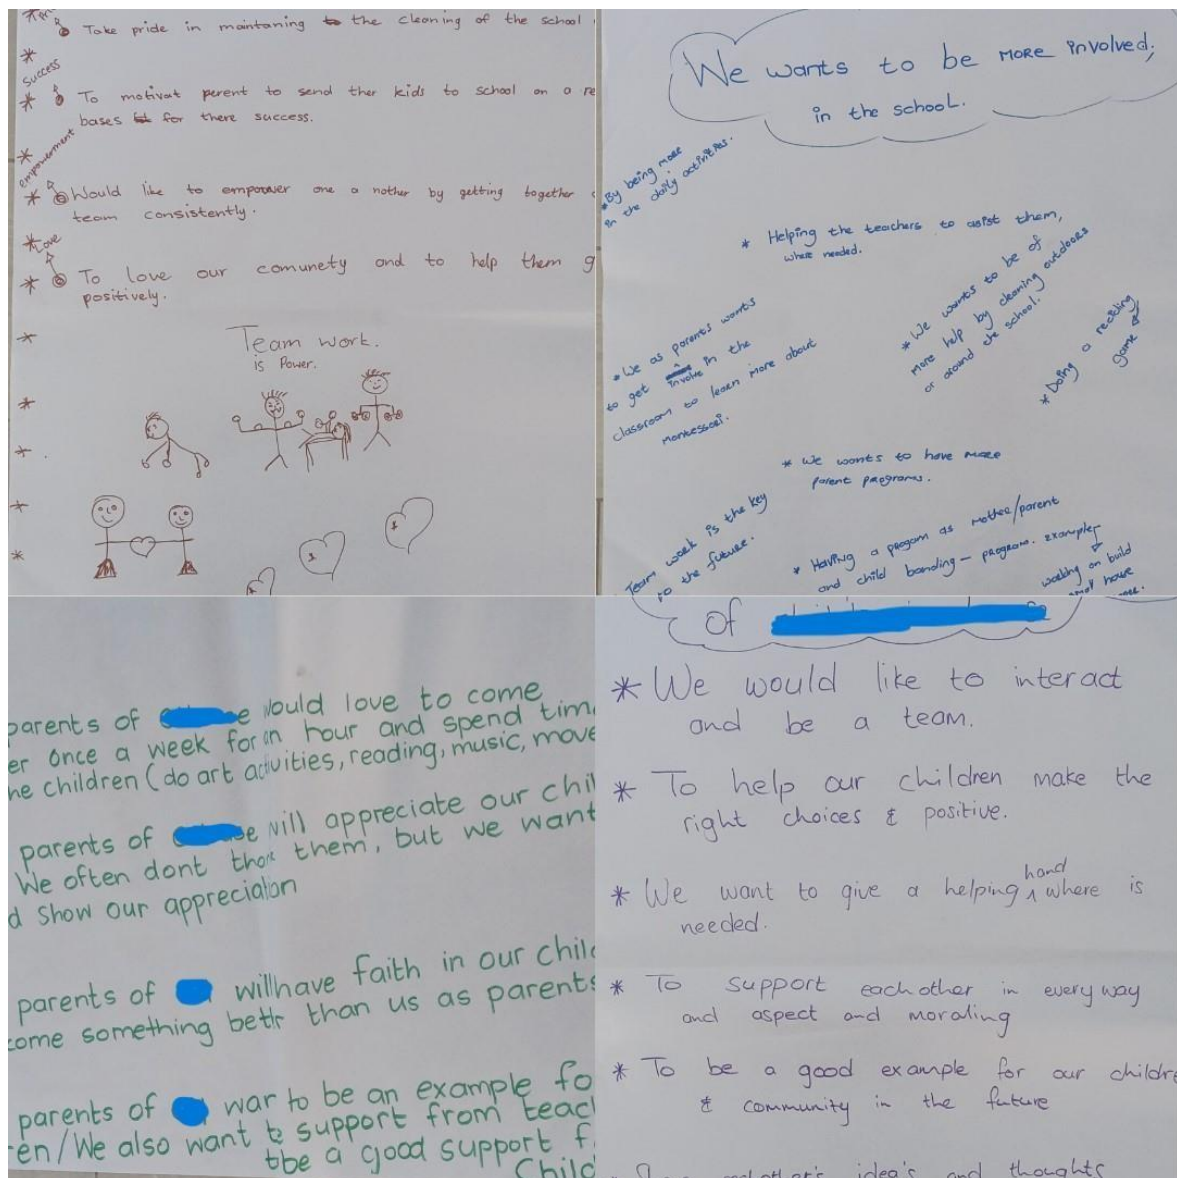 Take pride in maintaning the cleaning of the school
success
To motivat perent to send ther kids to school on a re
bases for there success.
empowerment
Would like to empower one a nother by getting together
team consistently.
Love
To love our comunety and to help them g
positively.
Team work.
is Power.
We wants to be more involved,
in the school.
* By being more
in the daily activities.
* Helping the teachers to asist them,
where needed.
* We as parents wants
to get involve in the
classroom to learn more about
Montessori.
* We wants to be of
more help by cleaning outdoors
or around the school.
* Doing a reciding
game
* We wants to have more
parent programs.
Team work is the key
to the future.
* Having a progam as mother/parent
and child bonding - program. example
working on build
parents of would love to come
er once a week for an hour and spend tim
he children (do art activities, reading, music, move
parents of will appreciate our chil
We often dont them, but we want
d show our appreciation
parents of will have faith in our chil
come something than us as parents
parents of to be an example fo
en/We also want to support from teac
be a good support f
Child
of
* We would like to interact
and be a team.
* To help our children make the
right choices & positive.
* We want to give a helping hand where is
needed.
* To support each other in every way
and aspect and moraling
* To be a good example for our childre
& community in the future
idea's and thoughts